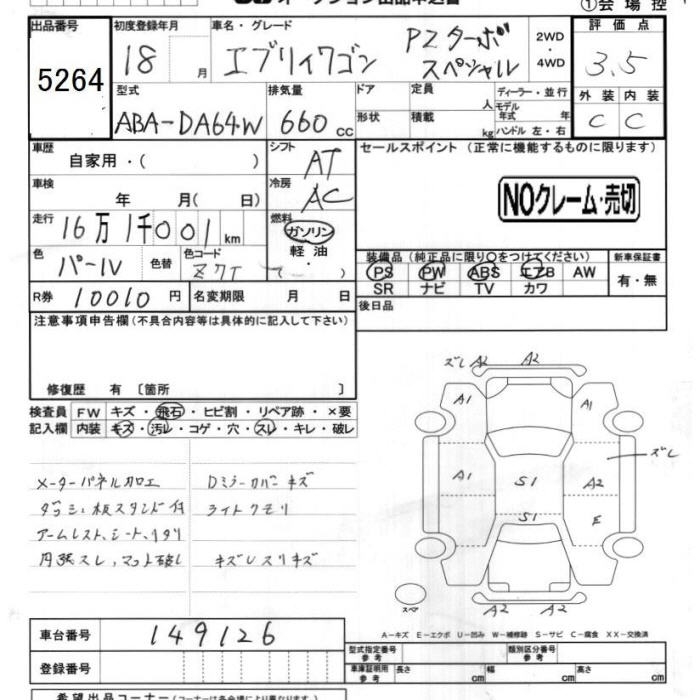 オークション出品申込書
①会場控
出品番号 初度登録年月 車名・グレード 評価点
5264 18 月 エブリィワゴン PZターボ スペシャル 2WD・4WD 3.5
外装 内装
C C
型式 排気量 ドア 定員 人 ディーラー・並行
ABA-DA64W 660 cc 形状 積載 kg モデル年式 年 ハンドル 左・右
車歴 シフト セールスポイント (正常に機能するものに限ります)
自家用・( ) AT
車検 冷房 NOクレーム・売切
年 月( 日) AC
走行 燃料
16万1千001km ガソリン
軽油
・
( )
色 色替 色コード
パールV Z7T
装備品(純正品に限り○をつけてください) 新車保証書
PS PW ABS エアB AW 有・無
SR ナビ TV カワ
R券 10010円 名変期限 月 日 後日品
注意事項申告欄(不具合内容等は具体的に記入して下さい)
修復歴 有 〔箇所 〕
検査員 FW キズ・飛石・ヒビ割・リペア跡・×要
記入欄 内装 キズ・汚レ・コゲ・穴・スレ・キレ・破レ
メーターパネルカロエ Dミラーカバーキズ
ライトクモリ
アームレスト、シート、
スレ、マット破レ キズU スリキズ
ズレ A2 A2
A1 A1
ズレ
A1 S1 A2
S1 E
スペア A2 A2
A-キズ E-エクボ U-凹み W-補修跡 S-サビ C-腐食 XX-交換済
車台番号 149126 型式指定番号 参考 類別区分番号 参考
登録番号 車庫証明用 参考 長さ cm 幅 cm 高さ cm
希望出品コーナー